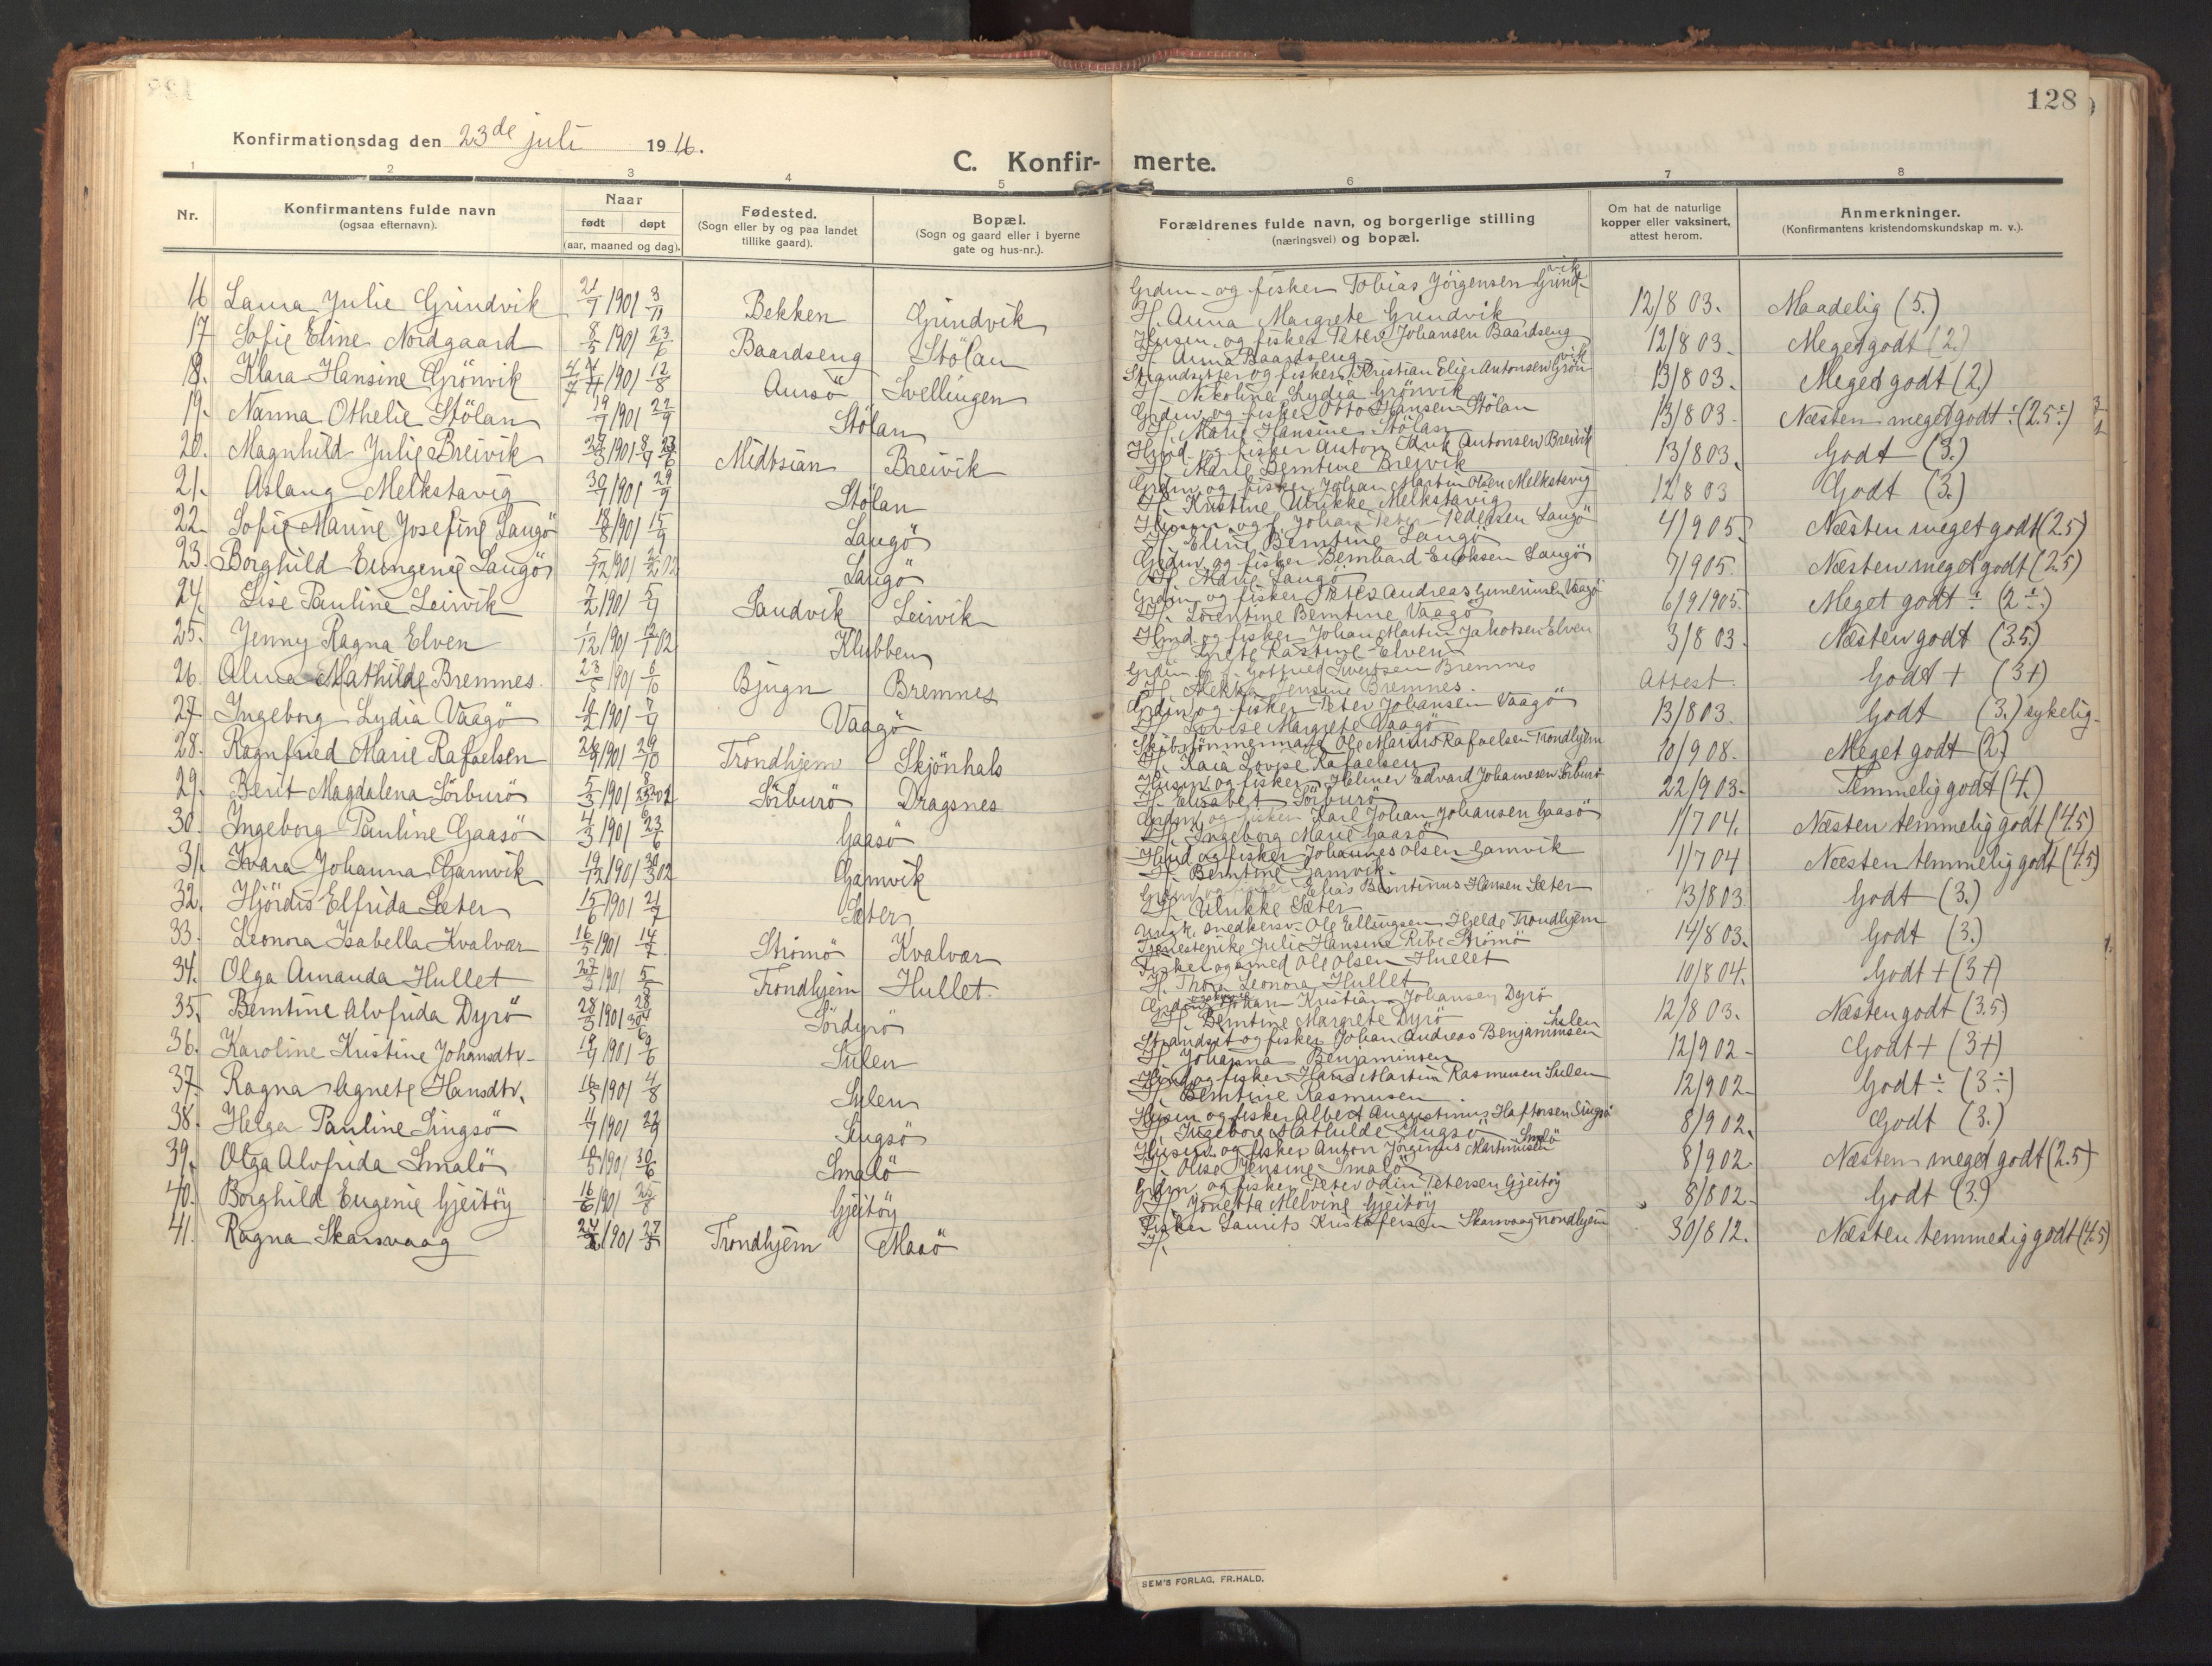 128
Konfirmationsdag den 23de juli 1916.
C. Konfir- merte.
1 2 3 4 5 6 7 8
Nr.
Konfirmantens fulde navn
(ogsaa efternavn).
Naar
født døpt
(aar, maaned og dag).
Fødested.
(Sogn eller by og paa landet
tillike gaard).
Bopæl.
(Sogn og gaard eller i byerne
gate og hus-nr.).
Forældrenes fulde navn, og borgerlige stilling
(næringsvei) og bopæl.
Om hat de naturlige
kopper eller vaksinert,
attest herom.
Anmerkninger.
(Konfirmantens kristendomskundskap m. v.).
16 Laura Julie Grindvik 21/7 1901 3/11 Bekken Grindvik Grdm. og fisker Tobias Jörgensen Grindvik 12/8 03. Maadelig (5.)
H. Anna Margrete Grindvik
17 Sofie Eline Nordgaard 8/5 1901 23/6 Baardseng Stölan Husm. og fisker Peter Johansen Baardseng 12/8 03. Meget godt (2)
H. Anna Baardseng
18. Klara Hansine Grönvik 1901 12/8 Aursö Svellingen Strandsitter og fisker Kristian Elier Antonsen Grönvik 13/8 03. Meget godt (2)
H. Nikoline Lydia Grönvik
19. Nanna Othelie Stölan 19/7 1901 22/9 Stölan Grdm. og fisker Otto Hansen Stölan 13/8 03. Næsten meget godt ÷ (2.5÷)
H. Marie Hansine Stölan
20. Magnhild Julie Breivik 1901 Midtsian Breivik og fisker Anton Antonsen Breivik 13/8 03. Godt (3.)
H. Marie Berntine Breivik
21. Aslaug Melkstavig 30/7 1901 29/9 Stölan Grdm. og fisker Johan Martin Olsen Melkstavig 12/8 03 Godt (3.)
H. Kristine Ulrikke Melkstavig
22. Sofie Marine Josefine Langö 18/8 1901 15/9 Langö Husm. og f. Johan Peter Pedersen Langö 4/9 05. Næsten meget godt (2.5)
H. Eline Berntine Langö
23. Borghild Eungenie Langö 5/12 1901 2/2 02 Langö Grdm. og fisker Bernhard Eriksen Langö 7/9 05. Næsten meget godt (2.5)
H. Marie Langö
24. Lise Pauline Leirvik 7/2 1901 Sandvik Leirvik Grdm. og fisker Peter Andreas Vaagö 6/9 1905. Meget godt ÷ (2÷)
H. Lorentine Berntine Vaagö
25. Jenny Ragna Elven 1/12 1901 12/1 02 Klubben Husd. og fisker Johan Martin Jakobsen Elven 3/8 03. Næsten godt (3.5)
H. Grete Elven
26. Alma Mathilde Bremnes. 23/8 1901 6/10 Bjugn Bremnes Grdm. og f. Gotfred Sivertsen Bremnes Attest. Godt + (3+)
H. Jensine Bremnes.
27 Ingeborg Lydia Vaagö 1901 7/4 Vaagö Grdm. og fisker Peter Johansen Vaagö 13/8 03. Godt (3.) sykelig
H. Lovise Margrete Vaagö
28. Ragnfred Marie Rafaelsen 1901 29/10 Trondhjem Skjönhals Skibstömmermand Ole Marius Rafaelsen Trondhjem 10/9 08. Meget godt (2)
H. Kaia Lovise Rafaelsen
29. Berit Magdalena Sörburö 5/3 1901 Sörburö Dragsnes Husm. og fisker Helmer Edvard Johannesen Sörburö 22/9 03. Temmelig godt (4.)
H. Elisabet Sörburö
30. Ingeborg Pauline Gaasö 4/3 1901 23/6 Gaasö Grdm. og fisker Karl Johan Johansen Gaasö 1/7 04. Næsten temmelig godt (4.5)
H. Ingeborg Marie Gaasö
31. Ivara Johanna Gamvik 19/12 1901 30/3 02 Gamvik Husd. og fisker Johannes Olsen Gamvik 1/7 04 Næsten temmelig godt (4.5)
H. Berntine Gamvik.
32. Hjördis Elfrida Sæter 15/6 1901 21/7 Sæter Grdm. og fisker Elias Berntinus Hansen Sæter 13/8 03 Godt (3.)
H. Ulrikke Sæter
33. Leonora Isabella Kvalvær 16/5 1901 14/7 Strömö Kvalvær Ungk. snedkersv. Ole Ellingsen Hjelde Trondhjem 14/8 03. Godt (3.)
Tjenestepike Julie Hansine Ribe Strömö
34. Olga Amanda Hullet 27/3 1901 5/5 Trondhjem Hullet. Fisker og smed Ole Olsen Hullet 10/8 04. Godt + (3+)
H. Thora Leonora Hullet
35. Berntine Alvfrida Dyrö 28/3 1901 Sördyrö Grdm. og fisker Johan Kristian Johansen Dyrö 12/8 03. Næsten godt (3.5)
H. Berntine Margrete Dyrö
36. Karoline Kristine Johansdtr. 1901 9/6 Sulen Strandsit. og fisker Johan Andreas Benjaminsen Sulen 12/9 02 Godt + (3+)
H. Johanna Benjaminsen
37. Ragna Agnete Hansdtr. 16/5 1901 4/8 Sulen og fisker Hans Martin Rasmusen Sulen 12/9 02 Godt ÷ (3÷)
H. Berntine Rasmusen.
38. Helga Pauline Singsö 1901 22/9 Singsö Husm. og fisker Albert Augustinus Haftorsen Singsö 8/9 02. Godt (3.)
H. Ingeborg Mathilde Singsö
39. Olga Alvfrida Smalö 1901 30/6 Smalö Husm. og fisker Anton Jörginus Martinusen Smalö 8/9 02 Næsten meget godt (2.5)
H. Olise Jensine Smalö
40. Borghild Eugenie Gjeitöy 16/6 1901 25/8 Gjeitöy Grdm. og fisker Peter Odin Petersen Gjeitöy 8/8 02. Godt (3.)
H. Jonetta Melvine Gjeitöy
41. Ragna Skarsvaag 1901 27/5 Trondhjem Maaö Fisker Laurits Kristofersen Skarsvaag Trondhjem 30/8 12. Næsten temmedig godt (4.5)
H.
SEM'S FORLAG, FR.HALD.